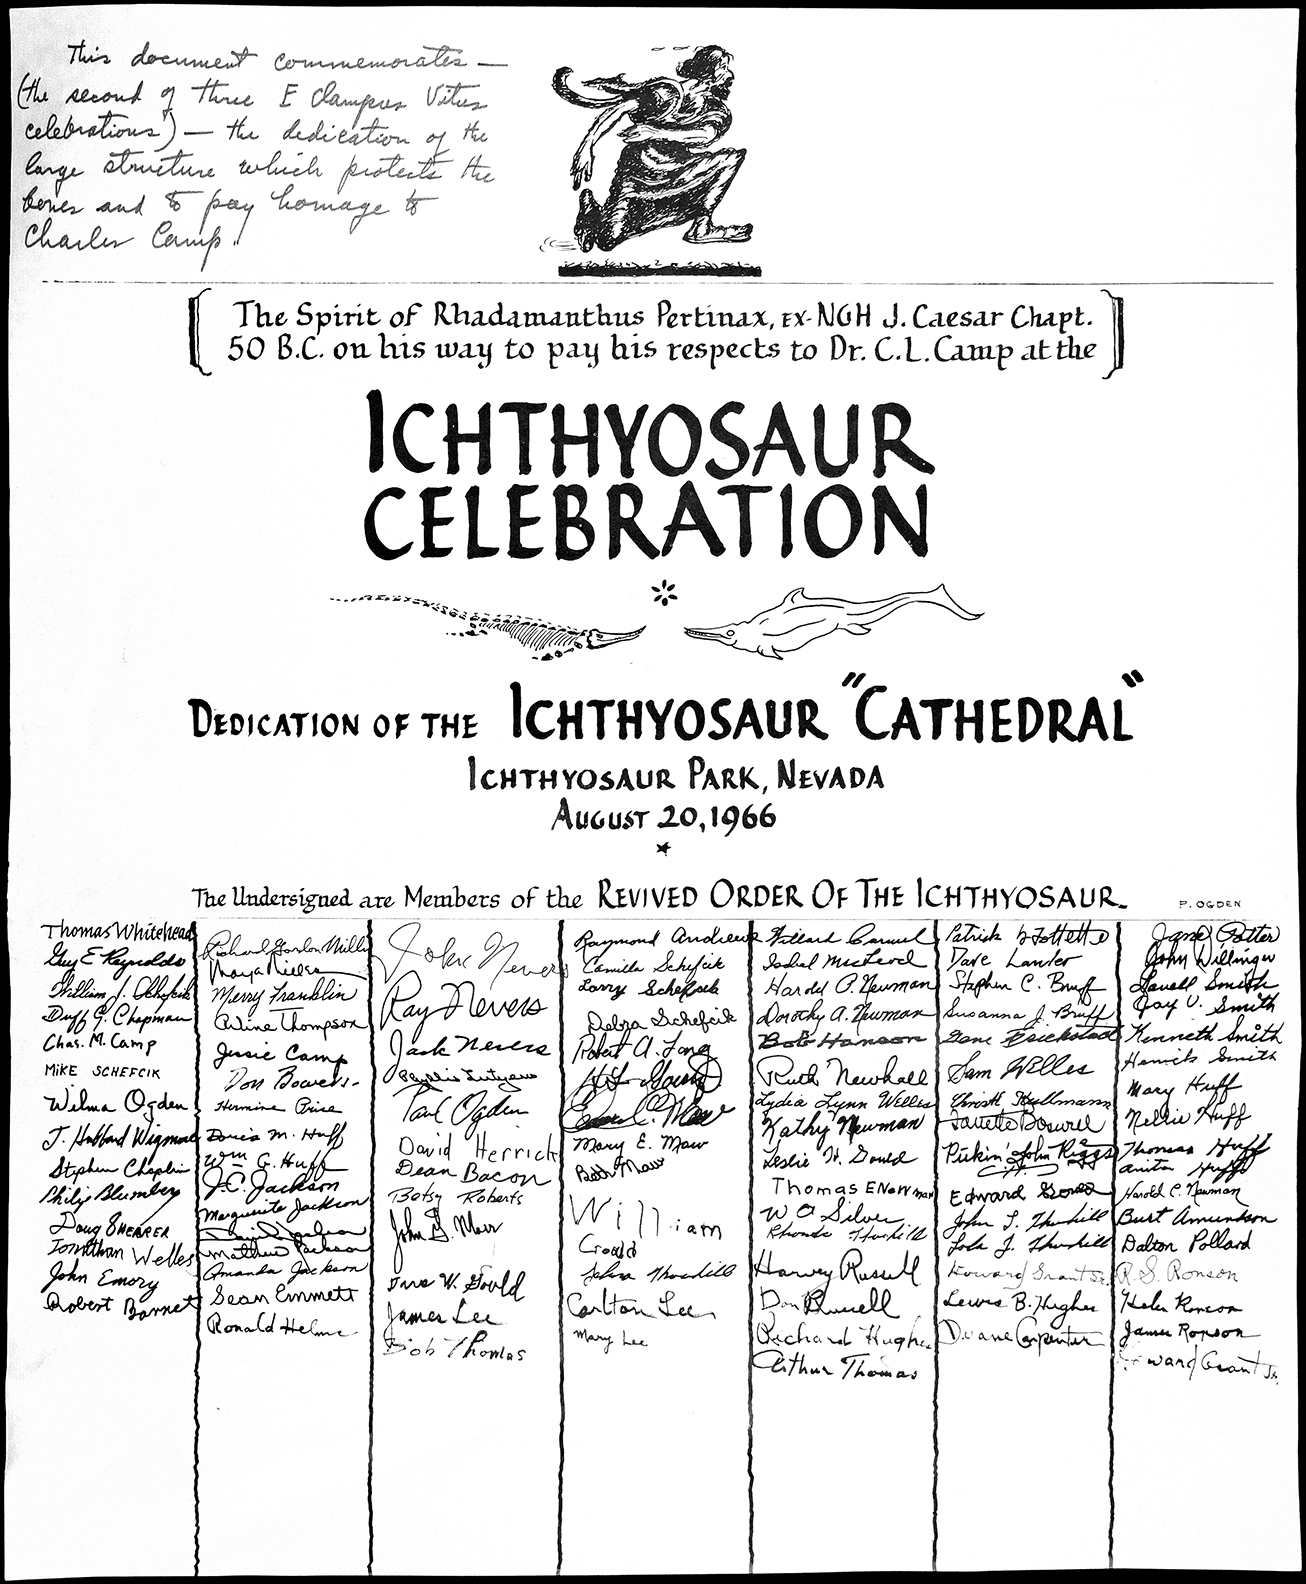 This document commemorates —
(the second of three E Clampus Vitus
celebrations) — the dedication of the
large structure which protects the
bones and to pay homage to
Charles Camp.
The Spirit of Rhadamanthus Pertinax, EX-NGH J. Caesar Chapt.
50 B.C. on his way to pay his respects to Dr. C.L. Camp at the
ICHTHYOSAUR
CELEBRATION
DEDICATION OF THE ICHTHYOSAUR "CATHEDRAL"
ICHTHYOSAUR PARK, NEVADA
AUGUST 20, 1966
The Undersigned are Members of the REVIVED ORDER OF THE ICHTHYOSAUR
P. OGDEN
Thomas Whitehead
Guy E Reynolds
William J.
Duff G. Chapman
Chas. M. Camp
MIKE SCHEFCIK
Wilma Ogden
J. Hubbard Wigmore
Stephen Chaplin
Philip Blumberg
Doug SHEARER
Jonathan Welles
John Emory
Robert Barnet
Richard Gordon Miller
Merry Franklin
Arline Thompson
Jessie Camp
Don Bowers
Hermine Prise
Doris M. Huff
Wm G. Huff
J.C. Jackson
Marguerite Jackson
Jackson
Matthew Jackson
Amanda Jackson
Sean Emmett
Ronald Helms
John Nevers
Ray Nevers
Jack Nevers
Phyllis
Paul Ogden
David Herrick
Dean Bacon
Betsy Roberts
John G. Marr
W. Gould
James Lee
Bob Thomas
Raymond Andrews
Camilla Schefcik
Larry Schefcik
Debra Schefcik
Robert A. Long
C. Maw
Mary E. Maw
Beth Maw
William
Gould
Thurhill
Carlton Lee
Mary Lee
Willard
Isabal MacLeod
Harold O. Newman
Dorothy A. Newman
Bob Hanson
Ruth Newhall
Lydia Lynn Welles
Kathy Newman
Leslie W. Gould
Thomas E Newman
W O Silver
Rhonda Thurhill
Harvey Russell
Don Russell
Richard Hughes
Arthur Thomas
Patrick
Dave Lawler
Stephen C. Bruff
Susanna J. Bruff
Gene
Sam Welles
Boswell
John Riggs
Edward Gould
John T. Thurhill
Lola J. Thurhill
Howard Grant Sr.
Lewis B. Hughes
Duane Carpenter
Jane Potter
John Willinger
Lavell Smith
Jay V. Smith
Kenneth Smith
Smith
Mary Huff
Nellie Huff
Thomas Huff
Anita Huff
Harold C. Newman
Burt Amundson
Dalton Pollard
R.S. Ronson
Helen Ronson
James Ronson
Howard Grant Jr.